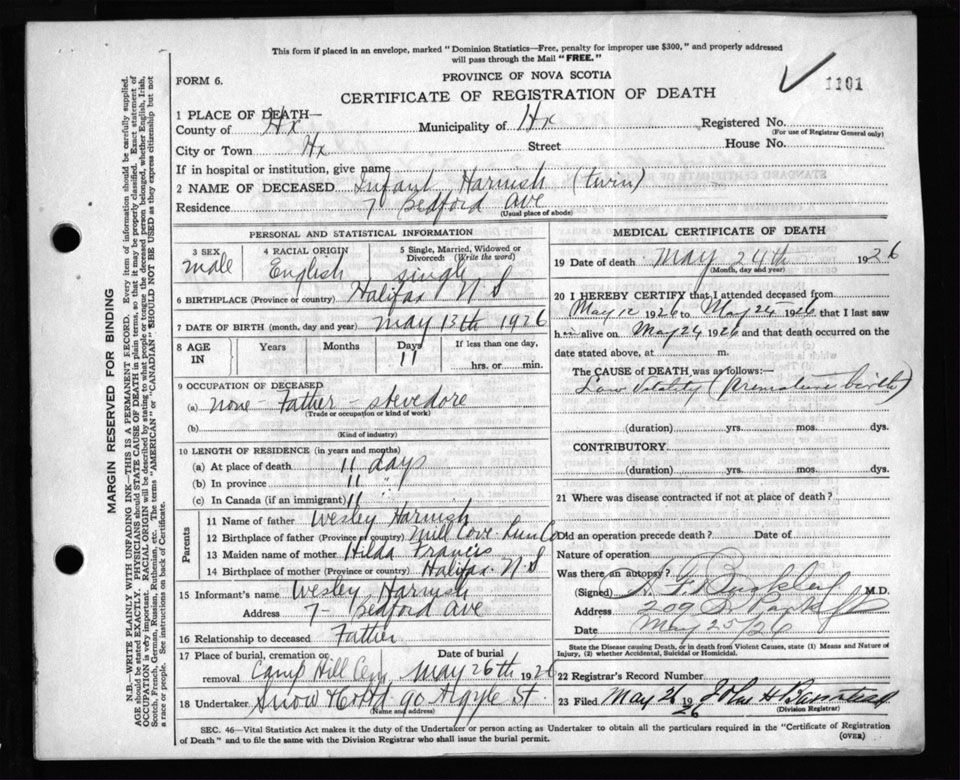 This form if placed in an envelope, marked "Dominion Statistics—Free, penalty for improper use $300," and properly addressed
will pass through the Mail "FREE."
FORM 6.
PROVINCE OF NOVA SCOTIA
1101
CERTIFICATE OF REGISTRATION OF DEATH
1 PLACE OF DEATH—
County of Hx Municipality of Hx Registered No.
(For use of Registrar General only)
City or Town Hx Street House No.
If in hospital or institution, give name
2 NAME OF DECEASED Infant Harnish (twin)
Residence 7 Bedford Ave
(Usual place of abode)
PERSONAL AND STATISTICAL INFORMATION
3 SEX male
4 RACIAL ORIGIN English
5 Single, Married, Widowed or Divorced: (Write the word) single
6 BIRTHPLACE (Province or country) Halifax N.S
7 DATE OF BIRTH (month, day and year) May 13th 1926
8 AGE IN Years Months Days 11 If less than one day, hrs. or min.
9 OCCUPATION OF DECEASED
(a) none - Father - stevedore
(Trade or occupation or kind of work)
(b)
(Kind of industry)
10 LENGTH OF RESIDENCE (in years and months)
(a) At place of death 11 days
(b) In province 11 "
(c) In Canada (if an immigrant) 11
Parents
11 Name of father Wesley Harnish
12 Birthplace of father (Province or country) Mill Cove Lun Co
13 Maiden name of mother Hilda Francis
14 Birthplace of mother (Province or country) Halifax N.S
15 Informant's name Wesley Harnish
Address 7- Bedford Ave
16 Relationship to deceased Father
17 Place of burial, cremation or removal Camp Hill Cem Date of burial May 26th 1926
18 Undertaker Snow & Co Ltd 90 Argyle St.
(Name and address)
MEDICAL CERTIFICATE OF DEATH
19 Date of death May 24th 1926
(Month, day and year)
20 I HEREBY CERTIFY that I attended deceased from
May 12 1926 to May 25 1926 that I last saw
him alive on May 24 1926 and that death occurred on
date stated above, at m.
The CAUSE of DEATH was as follows:—
Low Vitality (premature birth)
(duration) yrs. mos. dys.
CONTRIBUTORY
(duration) yrs. mos. dys.
21 Where was disease contracted if not at place of death?
Did an operation precede death? Date of
Nature of operation
Was there an autopsy?
(Signed) M.D.
Address 209
Date May 25/26
State the Disease causing Death, or in death from Violent Causes, state (1) Means and Nature of Injury, (2) whether Accidental, Suicidal or Homicidal.
22 Registrar's Record Number
23 Filed May 26 1926 John H
(Division Registrar)
SEC. 46—Vital Statistics Act makes it the duty of the Undertaker or person acting as Undertaker to obtain all the particulars required in the "Certificate of Registration
of Death" and to file the same with the Division Registrar who shall issue the burial permit.
(OVER)
MARGIN RESERVED FOR BINDING
N.B.—WRITE PLAINLY WITH UNFADING INK—THIS IS A PERMANENT RECORD. Every item of information should be carefully supplied.
AGE should be stated EXACTLY. PHYSICIANS should STATE CAUSE OF DEATH in plain terms, so that it may be properly classified. Exact statement of
OCCUPATION is very important. RACIAL ORIGIN will be described by stating to what people or tongue the deceased person belonged, whether English, Irish,
Scotch, French, German, Russian, Ruthenian, etc. The terms "AMERICAN" or "CANADIAN" SHOULD NOT BE USED as they express citizenship but not
a race or people. See instructions on back of Certificate.